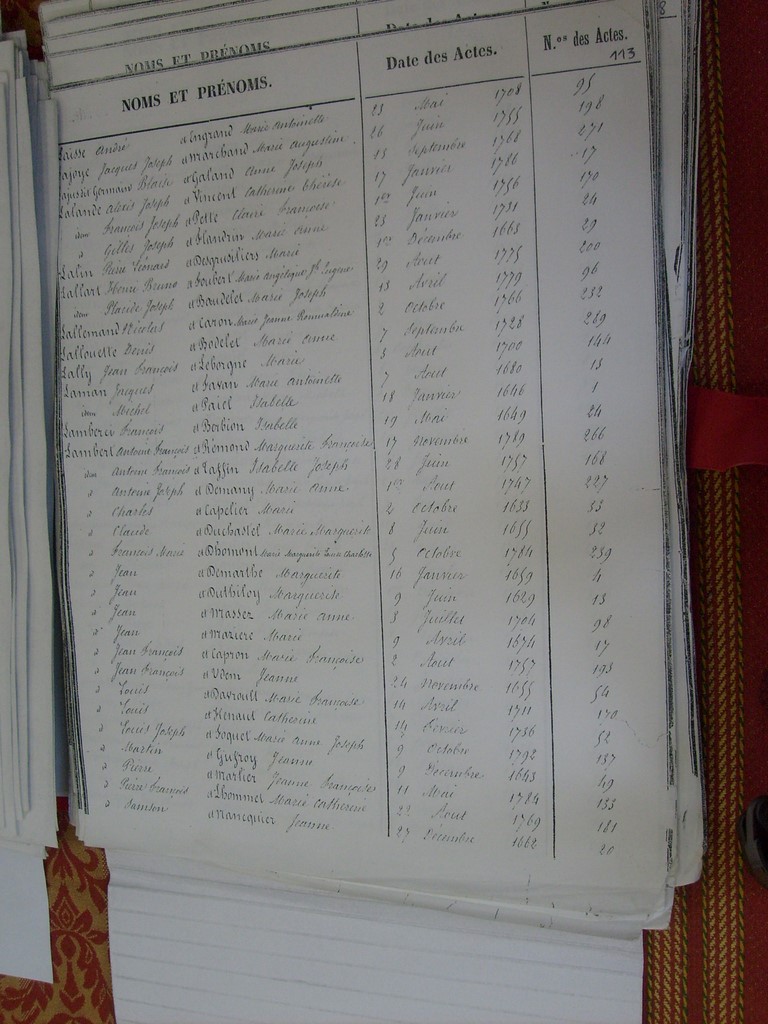 NOMS ET PRÉNOMS.
Date des Actes.
N.os des Actes.
113
Laisse André et Engrand Marie Antoinette 23 Mai 1708 95
Lajoye Jacques Joseph et Marchand Marie Augustine 26 Juin 1755 198
Germain Blaise et Galand Anne Joseph 15 Septembre 1768 271
Lalande Alexis Joseph et Vincent Catherine Thérèse 17 Janvier 1786 17
idem François Joseph et Pette Claire Françoise 1er Juin 1756 170
d Gilles Joseph et Flandrin Marie Anne 23 Janvier 1731 24
Lalin Pierre Léonard et Desgrusiliers Marie 1er Décembre 1663 29
Lallart Henri Bruno et Joubert Marie Angélique Eugene 29 Aout 1775 200
idem Placide Joseph et Baudelet Marie Joseph 13 Avril 1779 96
Lallemand Nicolas et Caron Marie Jeanne Romualdine 2 Octobre 1766 232
Lallouette Denis et Bodelet Marie Anne 7 Septembre 1728 269
Lally Jean François et Leborgne Marie 3 Aout 1700 144
Laman Jacques et Favan Marie Antoinette 7 Aout 1680 13
idem Michel et Paiel Isabelle 18 Janvier 1646 1
Lamberie François et Berbion Isabelle 19 Mai 1649 24
Lambert Antoine François et Rémond Marguerite Françoise 17 Novembre 1789 266
idem Antoine François et Taffin Isabelle Joseph 28 Juin 1757 168
d Antoine Joseph et Demany Marie Anne 1er Aout 1747 227
d Charles et Capelier Marie 2 Octobre 1633 33
d Claude et Duchastel Marie Marguerite 8 Juin 1655 32
d François Marie et Dhomont Marie Marguerite Louise Charlotte 5 Octobre 1784 239
d Jean et Demarthe Marguerite 16 Janvier 1659 4
d Jean et Duthiloy Marguerite 9 Juin 1629 13
d Jean et Massez Marie Anne 3 Juillet 1704 98
d Jean et Maziere Marie 9 Avril 1674 17
d Jean François et Capron Marie Françoise 2 Aout 1757 193
d Jean François et Udem Jeanne 24 Novembre 1655 54
d Louis et Davroult Marie Françoise 14 Avril 1711 170
d Louis et Henaut Catherine 14 Février 1736 52
d Louis Joseph et Foquet Marie Anne Joseph 9 Octobre 1792 137
d Martin et Gufroy Jeanne 9 Décembre 1643 49
d Pierre et Marlier Jeanne Françoise 11 Mai 1784 133
d Pierre François et Lhommel Marie Catherine 22 Aout 1769 181
d Samson et Manequier Jeanne 27 Décembre 1662 20